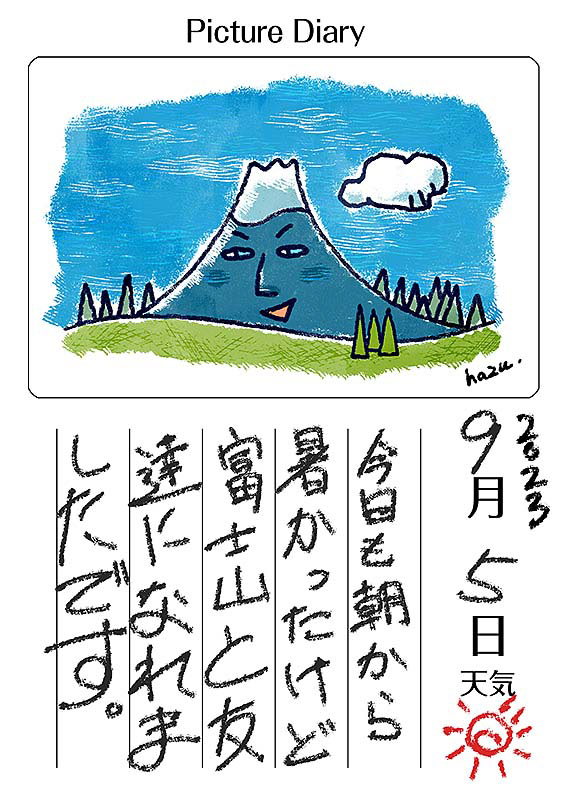 Picture Diary
hazu.
2023
9月5日
天気
今日も朝から
暑かったけど
富士山と友
達になれま
したです。